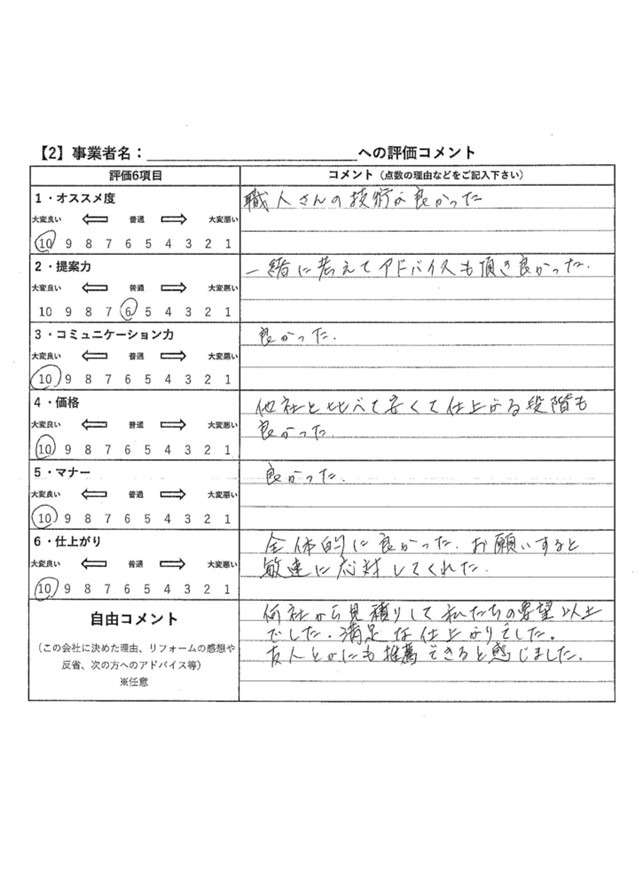 【2】事業者名：＿＿＿＿＿＿＿＿＿＿への評価コメント
評価6項目
コメント（点数の理由などをご記入下さい）
1・オススメ度
大変良い 普通 大変悪い
10 9 8 7 6 5 4 3 2 1
職人さんの技術が良かった
2・提案力
大変良い 普通 大変悪い
10 9 8 7 6 5 4 3 2 1
一緒に考えてアドバイスも頂き良かった.
3・コミュニケーション力
大変良い 普通 大変悪い
10 9 8 7 6 5 4 3 2 1
良かった.
4・価格
大変良い 普通 大変悪い
10 9 8 7 6 5 4 3 2 1
他社と比べて安くて仕上がる段階も
良かった.
5・マナー
大変良い 普通 大変悪い
10 9 8 7 6 5 4 3 2 1
良かった.
6・仕上がり
大変良い 普通 大変悪い
10 9 8 7 6 5 4 3 2 1
全体的に良かった. お願いすると
敏速に応対してくれた.
自由コメント
（この会社に決めた理由、リフォームの感想や
反省、次の方へのアドバイス等）
※任意
何社から見積りして私たちの要望以上
でした. 満足な仕上がりでした。
友人とかにも推薦できると感じました.